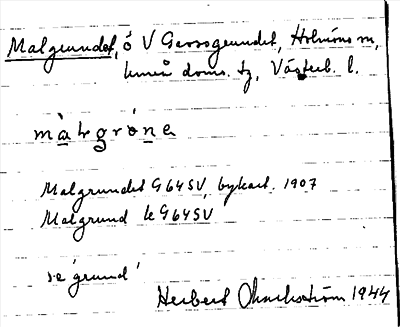 Malgrundet, ö V Gerosgrundet, Holmöns sn,
Umeå doms. tg, Västerb. l.
màlgróne
Malgrundet G64SV, bykart. 1907
Malgrund tk G64SV
se 'grund'
Herbert 1944